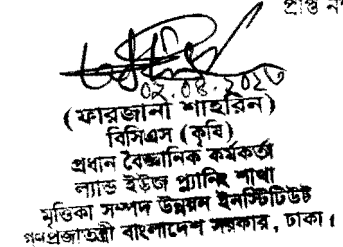 প্রাপ্ত
(ফারজানা শাহরিন)
বিসিএস (কৃষি)
প্রধান বৈজ্ঞানিক কর্মকর্তা
ল্যান্ড ইউজ প্ল্যানিং শাখা
মৃত্তিকা সম্পদ উন্নয়ন ইনস্টিটিউট
গণপ্রজাতন্ত্রী বাংলাদেশ সরকার, ঢাকা।